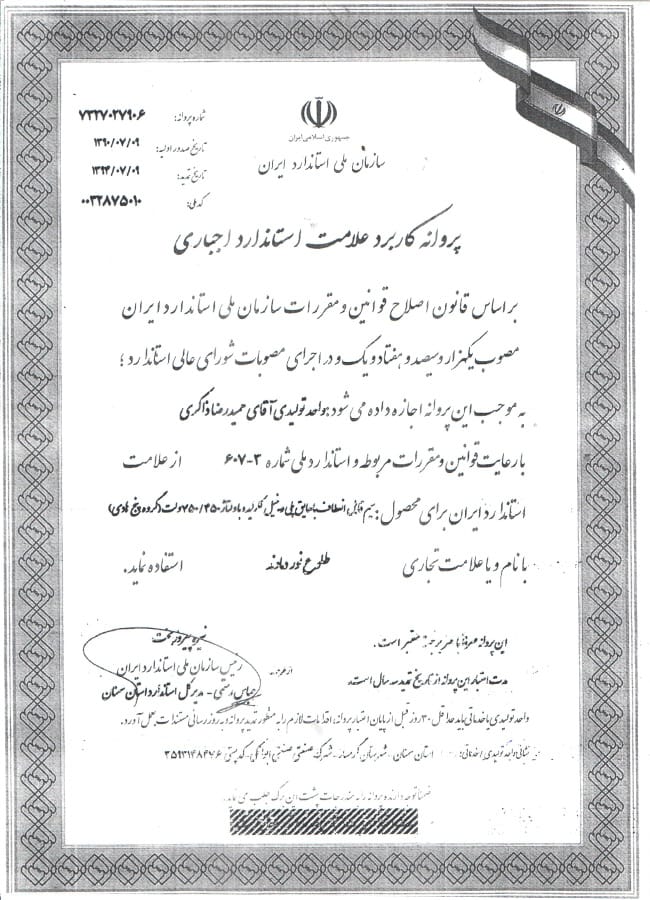 جمهوری اسلامی ایران
سازمان ملی استاندارد ایران
شماره پروانه: ۷۳۲۷۰۲۷۹۰۶
تاریخ صدور اولیه: ۱۳۹۰/۰۷/۰۹
تاریخ تمدید: ۱۳۹۴/۰۷/۰۹
کد ملی: ۰۰۳۲۸۷۵۰۱۰
پروانه کاربرد علامت استاندارد اجباری
بر اساس قانون اصلاح قوانین و مقررات سازمان ملی استاندارد ایران
مصوب یکهزار و سیصد و هفتاد و یک و در اجرای مصوبات شورای عالی استاندارد ؛
به موجب این پروانه اجازه داده می شود به واحد تولیدی آقای حمیدرضا ذاکری
با رعایت قوانین و مقررات مربوطه و استاندارد ملی شماره ۳-۶۰۷ از علامت
استاندارد ایران برای محصول : سیم قابل انعطاف با عایق پلی وینیل کلرید و با ولتاژ ۴۵۰/۷۵۰ ولت (گروه پنج هادی)
با نام و یا علامت تجاری طلوع نور دماوند استفاده نماید.
این پروانه همراه با مهر برجسته معتبر است.
مدت اعتبار این پروانه از تاریخ تمدید سه سال است.
نیره پیروز بخت
رئیس سازمان ملی استاندارد ایران
از طرف عباس رستمی - مدیر کل استاندارد استان سمنان
واحد تولیدی یا خدماتی باید حداقل ۳۰ روز قبل از پایان اعتبار پروانه، اقدامات لازم را به منظور تمدید پروانه و به روز رسانی مستندات بعمل آورد.
نشانی واحد تولیدی/خدماتی: استان سمنان - شهرستان گرمسار - شهرک صنعتی - کدپستی ۳۵۹۳۱۴۸۴۷۶
ضمنا توجه دارنده پروانه را به مندرجات پشت این برگ جلب می نماید.